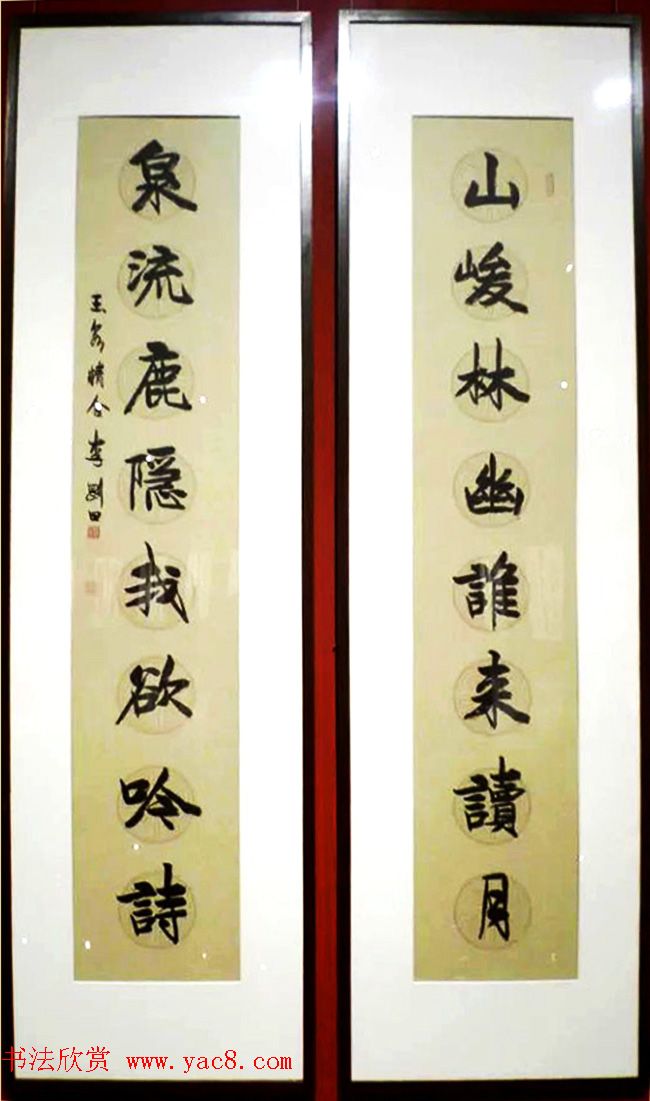 山峻林幽誰来讀月
泉流鹿隐我欲吟詩
李刚田
书法欣赏 www.yac8.com